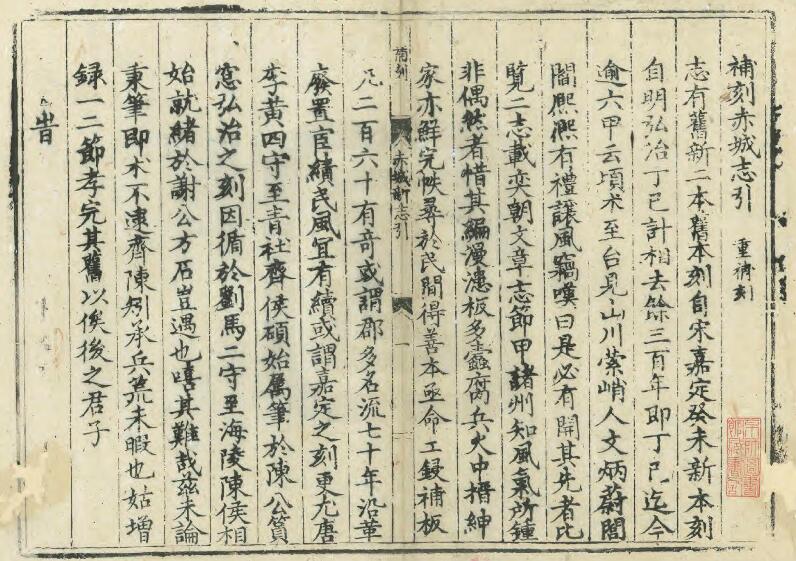 補刻赤城志引 重補刻
志有舊新二本舊本刻自宋嘉定癸未新本刻
自明弘治丁巳計相去餘三百年即丁巳迄今
逾六甲云頃朮至台見山川縈峭人文炳蔚閭
閻熈熈有禮讓風竊嘆曰是必有開其先者比
覽二志載奕朝文章志節甲諸州知風氣所鍾
非偶然者惜其編漫漶板多蠹腐兵火中搢紳
家亦鮮完帙尋於民間得善本亟命工鋟補板
補刻
赤城新志引
一
凡二百六十有奇或謂郡多名流七十年沿革
廢置宦績民風宜有續或謂嘉定之刻更尤唐
李黃四守至青社齊侯碩始属筆於陳公篔
窓弘治之刻因循於劉馬二守至海陵陳侯相
始就緒於謝公方石豈遇也嘻其難哉茲未論
秉筆即朮不逮齊陳矧承兵荒未暇也姑増
録一二節孝完其舊以俟後之君子
旹